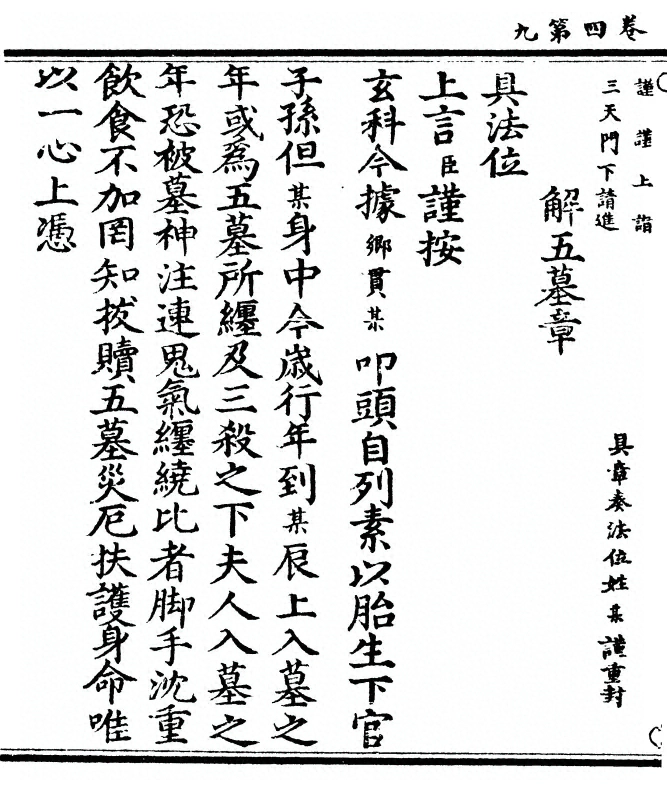 卷四第九
謹謹上詣
三天門下請進
具章奏法位姓某謹重封
解五墓章
具法位
上言臣謹按
玄科今據鄉貫某叩頭自列素以胎生下官
子孫但某身中今歲行年到某辰上入墓之
年或爲五墓所纏及三殺之下夫人入墓之
年恐被墓神注連鬼氣纏繞比者脚手沈重
飲食不加罔知拔贖五墓災厄扶護身命唯
以一心上憑